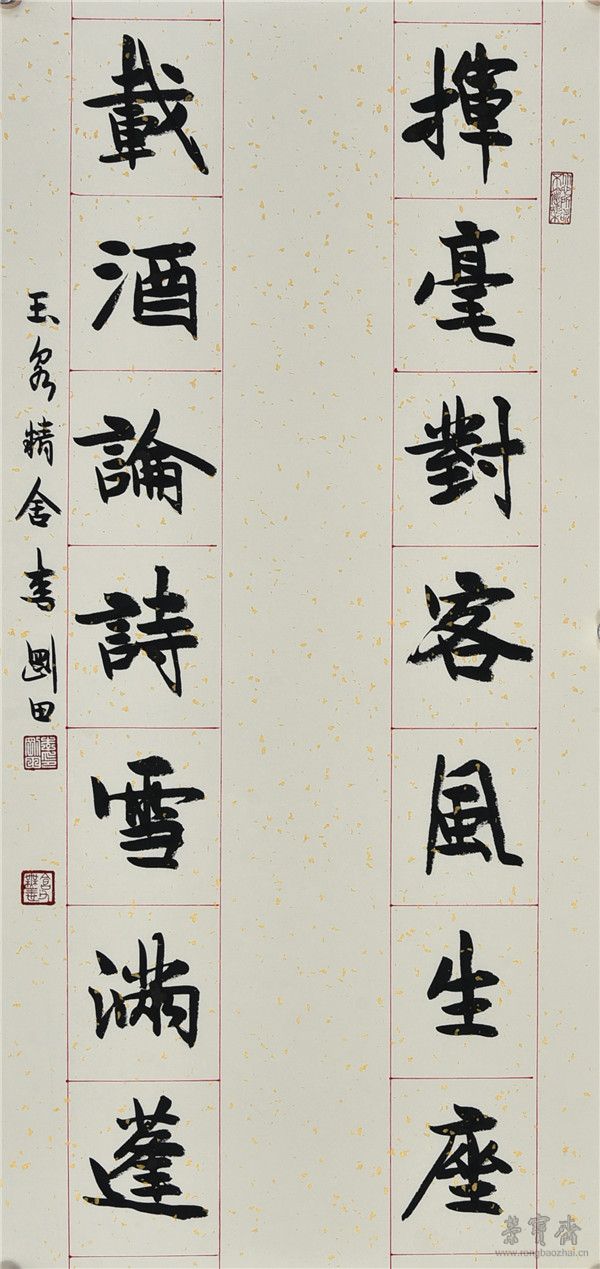 揮毫對客風生座
載酒論詩雪滿蓬
玉泉精舍李剛田
榮寶齋
www.rongbaozhai.cn